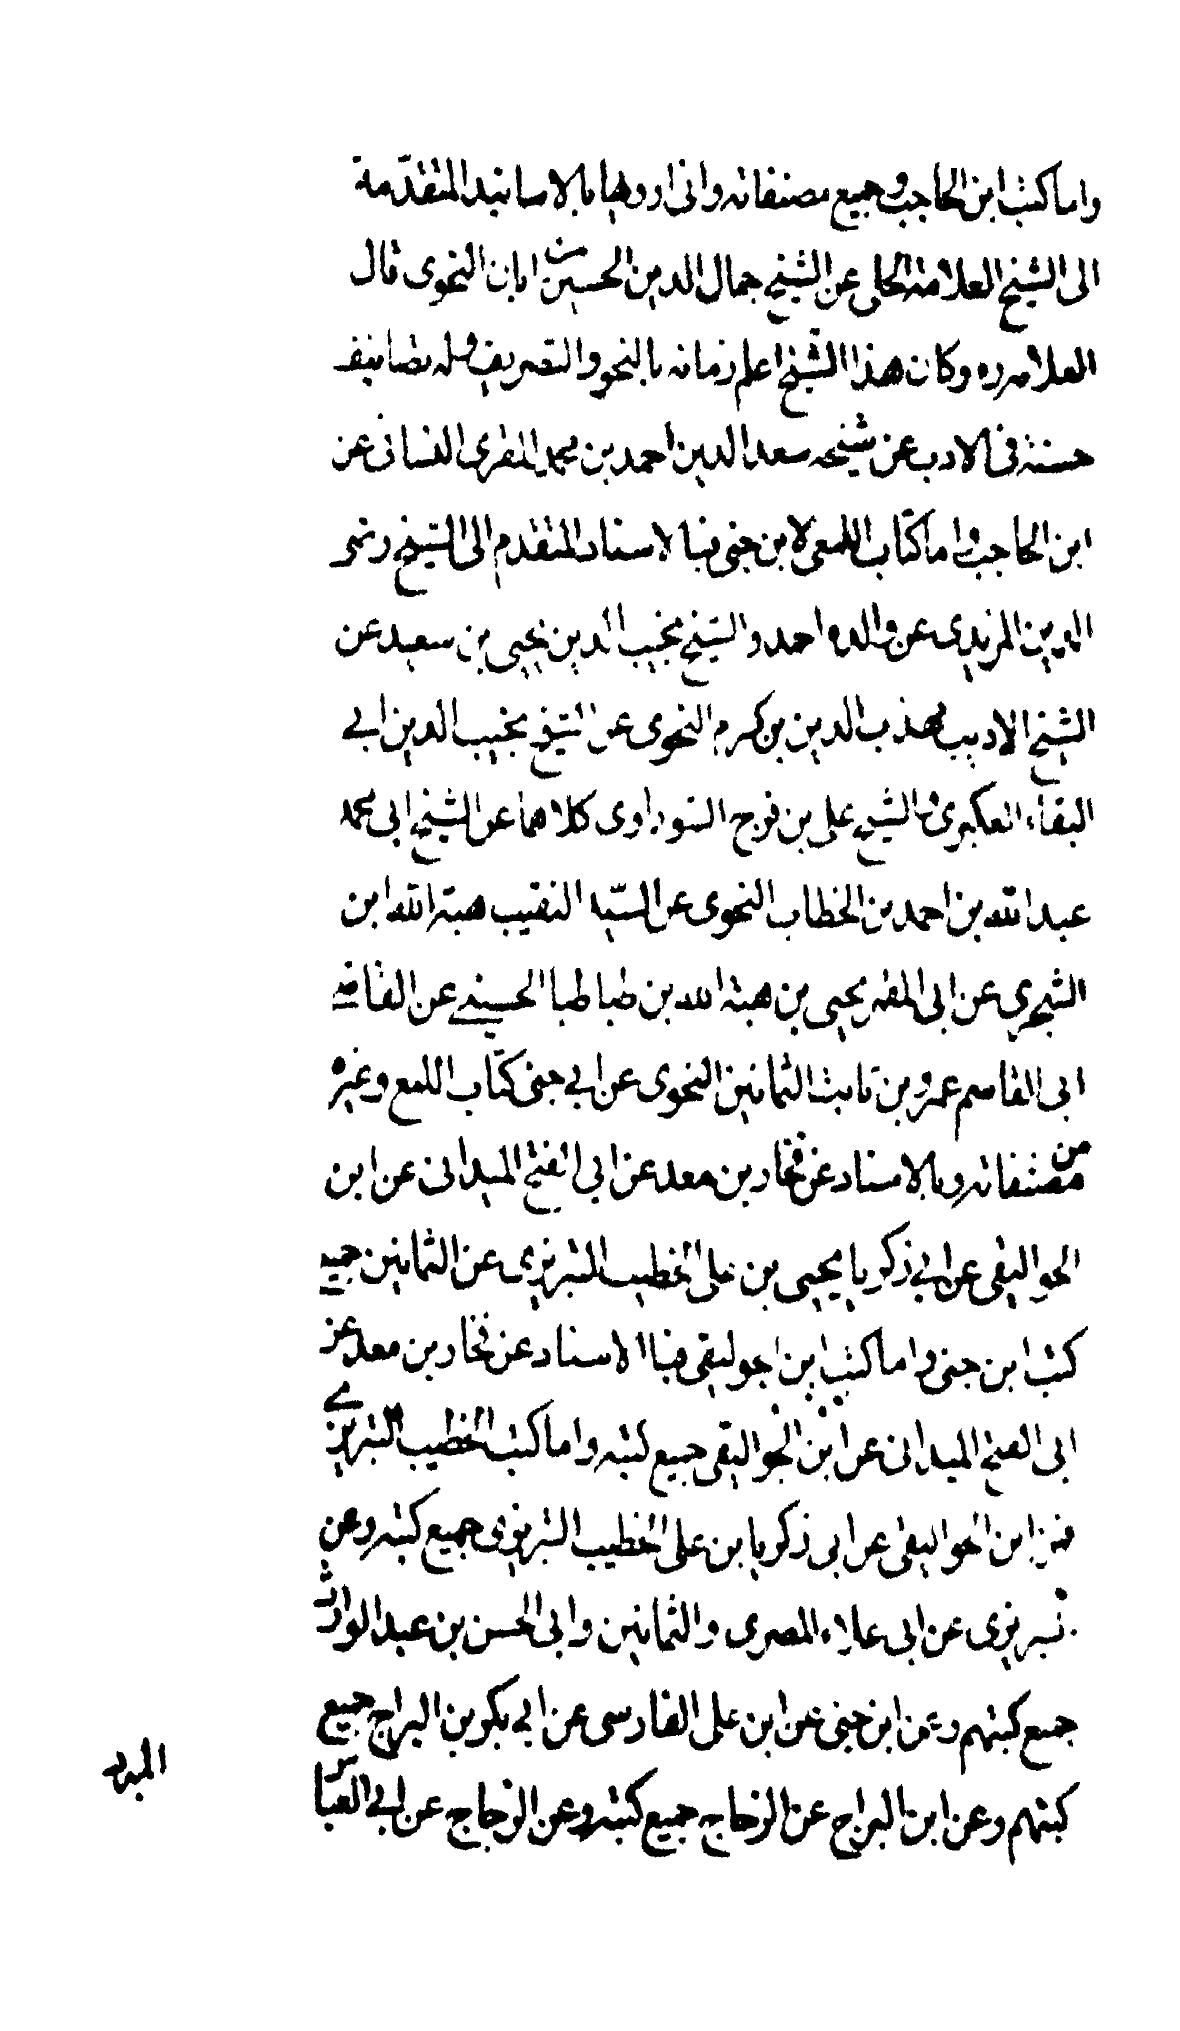 واما كتب ابن الحاجب وجميع مصنفاته واني ارويها بالاسانيد المتقدّمة
الى الشيخ العلامة الحلى عن الشيخ جمال الدين الحسين بن ابان النحوى قال
العلامه ره وكان هذا الشيخ اعلم زمانه بالنحو والتصريف وله تصانيف
حسنة فى الادب عن شيخه سعد الدين احمد بن محمد المقرى النسائى عن
ابن الحاجب واما كتاب اللمع لابن جنى فبالاسناد المتقدم الى الشيخ رضى
الدين المزيدى عن والده احمد والشيخ نجيب الدين يحيى بن سعيد عن
الشيخ الاديب مهذب الدين بن كرم النحوى عن الشيخ نجيب الدين ابي
البقاء العكبرى والشيخ على بن فرج السوراوى كلاهما عن الشيخ ابى محمد
عبد الله بن احمد بن الخطاب النحوى عن السيّد النقيب هبة الله ابن
الشجرى عن ابى المعمر يحيى بن هبة الله بن طباطبا الحسينے عن القاضے
ابى القاسم عمرو بن ثابت الثمانين النحوى عن ابي جنى كتاب اللمع وغيره
من مصنفاته وبالاسناد عن فخار بن معد عن ابى الفتح الميدانى عن ابن
الجواليقى عن ابي ذكريا يحيى بن على الخطيب التبريزى عن الثمانين جميع
كتب ابن جنى واما كتب ابن اجوليقى فباالاسناد عن فخار بن معد عن
ابى الفتح الميدانى عن ابن الجواليقى جميع كتبه واما كتب الخطيب التبريزے
فعن ابن الجواليقى عن ابى ذكريا بن على الخطيب التبريزى جميع كتبه وعن
تبريزى عن ابى علاء المصرى والثمانين وابى الحسن بن عبد الوارث
جميع كتبهم وعن ابن جنى عن ابن على الفارسى عن ابي بكر بن البراج جميع
كبتهم وعن ابن البراج عن الزجاج جميع كتبه وعن الزجاج عن ابي العباس
المبرد